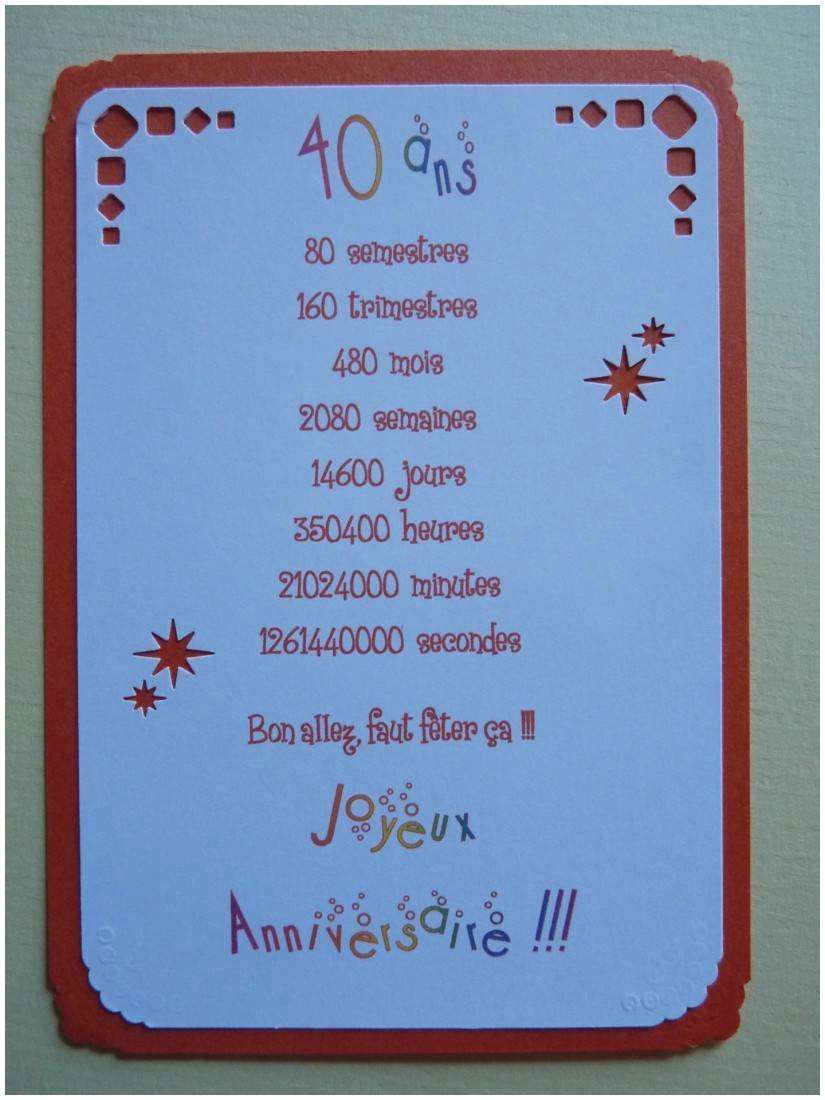 40 ans
80 semestres
160 trimestres
480 mois
2080 semaines
14600 jours
350400 heures
21024000 minutes
1261440000 secondes
Bon allez, faut fêter ça !!!
Joyeux
Anniversaire !!!